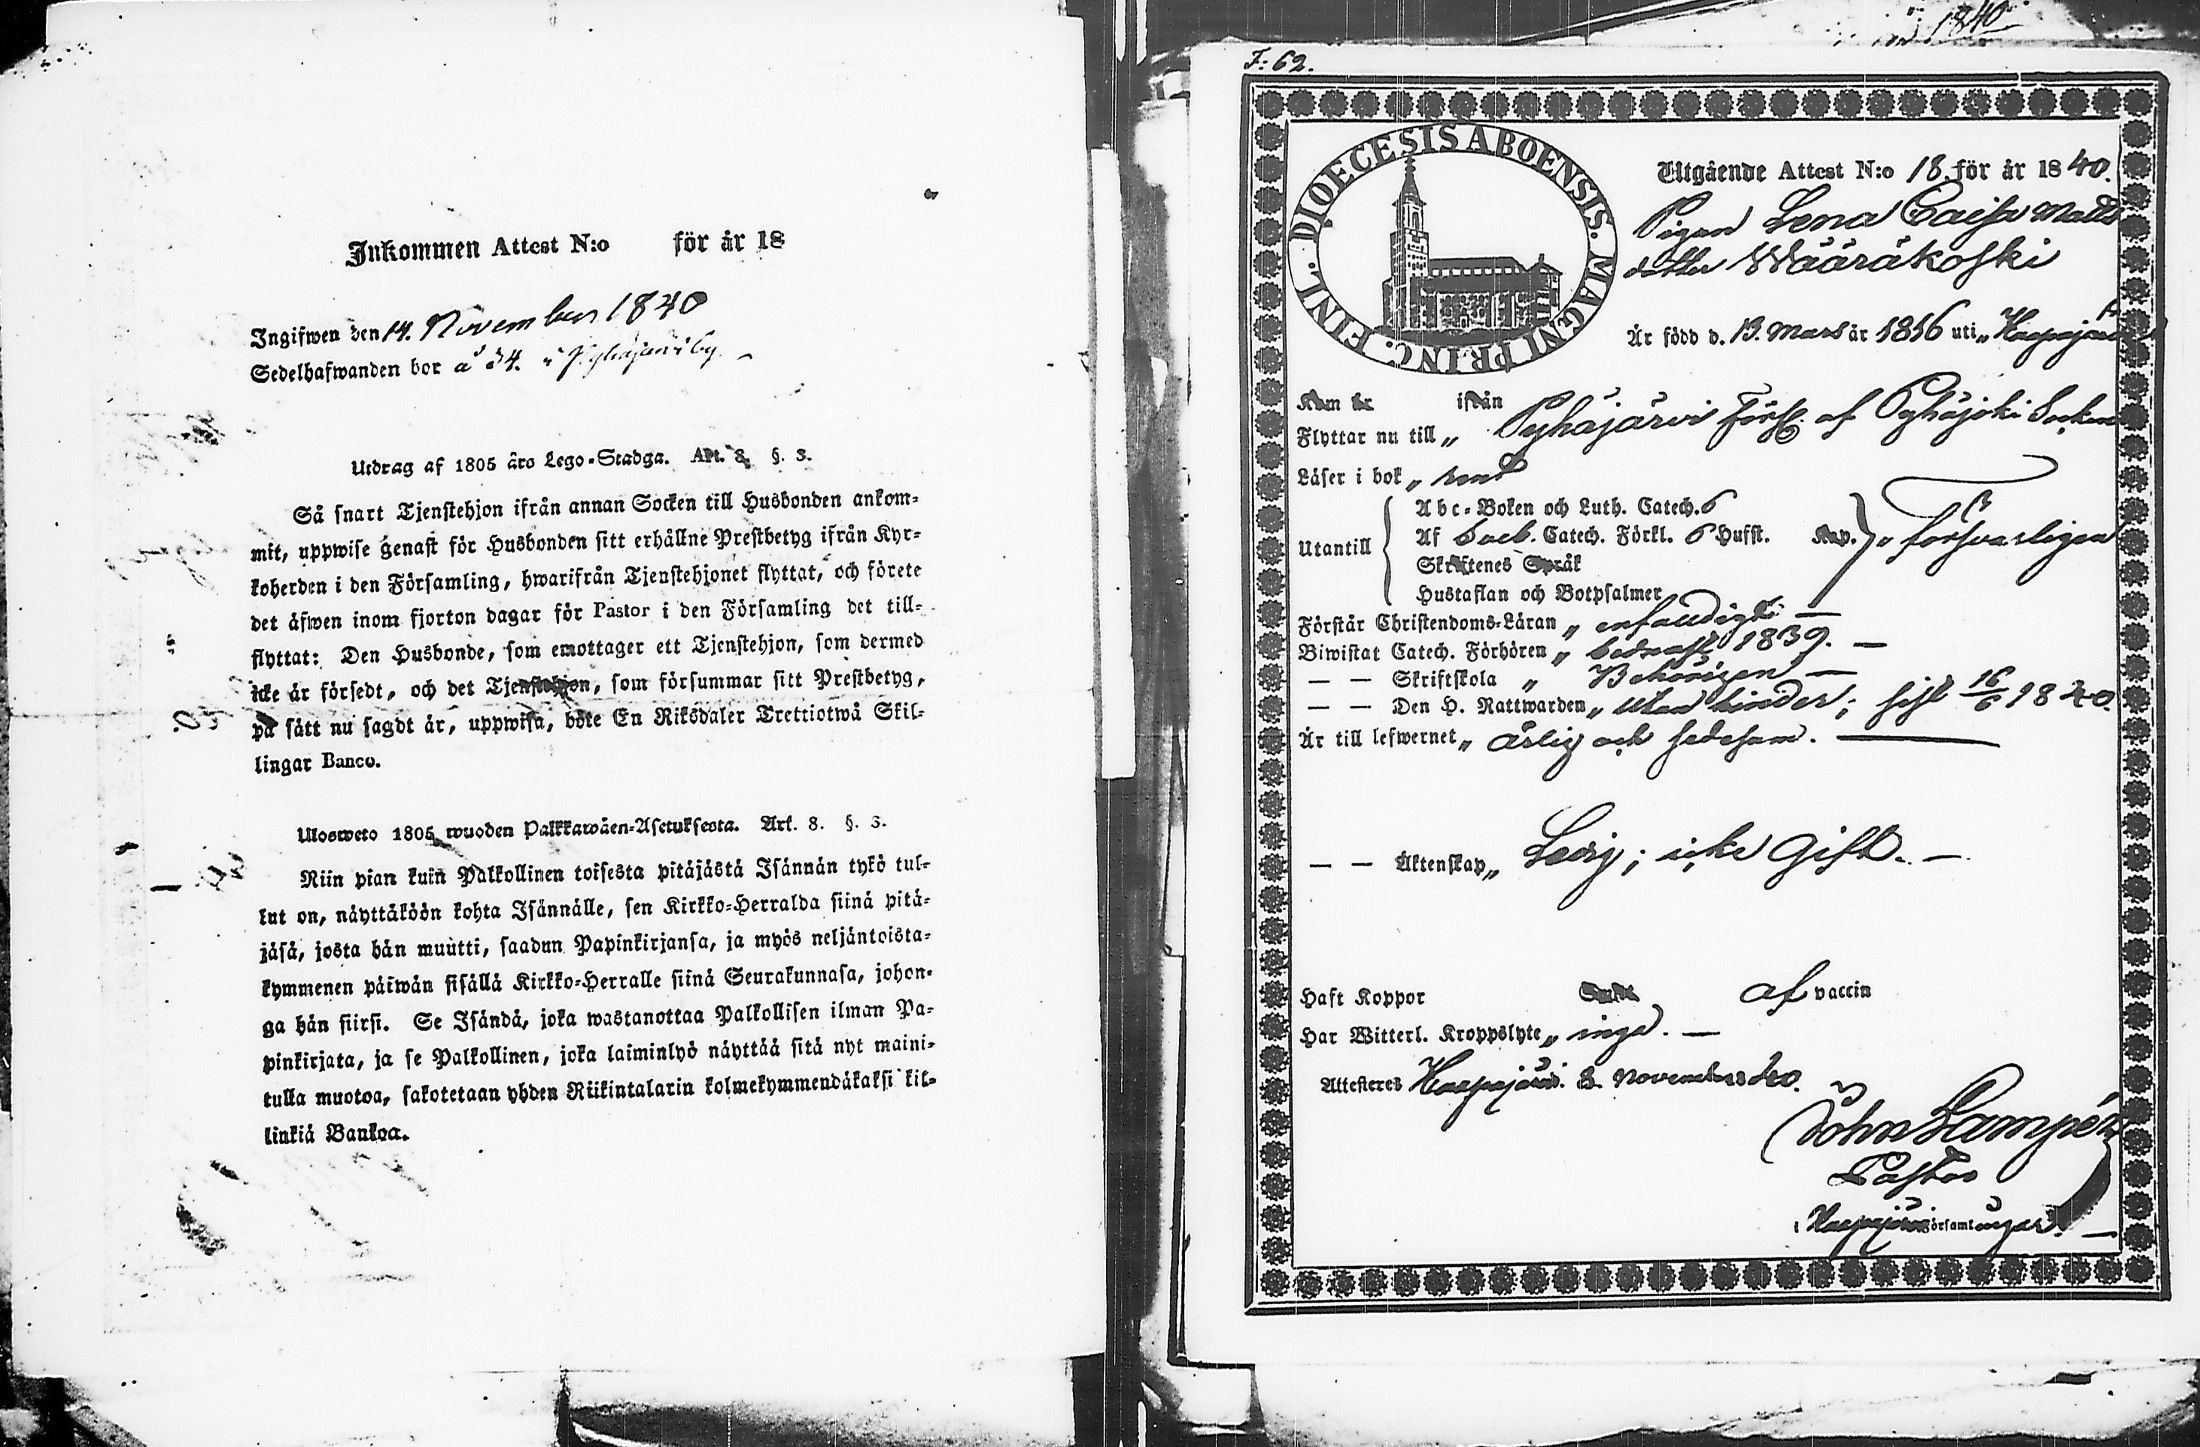 Inkommen Attest N:o för år 18
Ingifwen den 14. November 1840
Sedelhafwanden bor å 34. i Pyhäjärvi by.
Utdrag af 1805 års Lego-Stadga. Art. 8. §. 3.
Så snart Tjenstehjon ifrån annan Socken till Husbonden ankom-
mit, uppwise genast för Husbonden sitt erhållne Prestbetyg ifrån Kyr-
koherden i den Församling, hwarifrån Tjenstehjonet flyttat, och förete
det äfwen inom fjorton dagar för Pastor i den Församling det till-
flyttat: Den Husbonde, som emottager ett Tjenstehjon, som dermed
icke är försedt, och det Tjenstehjon, som försummar sitt Prestbetyg,
på sätt nu sagdt är, uppwisa, böte En Riksdaler Trettiotwå Skil-
lingar Banco.
Ulosweto 1805 wuoden Palkkawäen-Asetuksesta. Art. 8. §. 3.
Niin pian kuin Palkollinen toisesta pitäjästä Isännän tykö tul-
lut on, näyttäköön kohta Isännälle, sen Kirkko-Herralda siinä pitä-
jäsä, josta hän muutti, saadun Papinkirjansa, ja myös neljäntoista-
kymmenen päiwän sisällä Kirkko-Herralle siinä Seurakunnasa, johon-
ga hän siirsi. Se Isändä, joka wastanottaa Palkollisen ilman Pa-
pinkirjata, ja se Palkollinen, joka laiminlyö näyttää sitä nyt maini-
tulla muotoa, sakotetaan yhden Riikintalarin kolmekymmendäkaksi kil-
linkiä Bankoa.
1840
F: 62.
DIOECESIS ABOENSIS. MAGNI PRINC. FINL.
Utgående Attest N:o 18 för år 1840.
Pigan Lena Caisa Matts
dotter Wääräkoski
Är född d. 13. Mars år 1816 uti „ Haapajärvi
Kom år ifrån
Flyttar nu till „ Pyhäjärvi Förs. af Pyhäjoki Socken
Läser i bok „ rent
Utantill
Abc-Boken och Luth. Catech. 6
Af Sveb. Catech. Förkl. 6 Hufst. Kap. „ försvarligen
Skriftenes Språk
Hustaflan och Botpsalmer
Förstår Christendoms-Läran „ enfaldigt
Biwistat Catech. Förhören „ sednast 1839.
— — Skriftskola „ Behörigen
— — Den H. Nattwarden „ utan hinder; sist 16/6 1840.
Är till lefwernet „ ärlig och sedesam.
— — Äktenskap „ Ledig; icke gift.
Haft Koppor af vaccin
Har Witterl. Kroppslyte „ inga.
Attesteras Haapajärvi. 8. November 1840.
Joh: Lampén
Pastor
i Haapajärvi Församlingar.